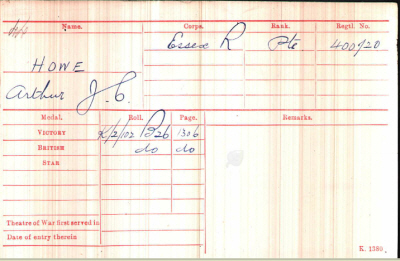 Name. Corps. Rank. Regtl. No.
Essex R Pte 400720
HOWE
Arthur J. C.
Medal. Roll. Page. Remarks.
VICTORY K/2/102 B26 1306
BRITISH do do
STAR
Theatre of War first served in
Date of entry therein
K. 1380.